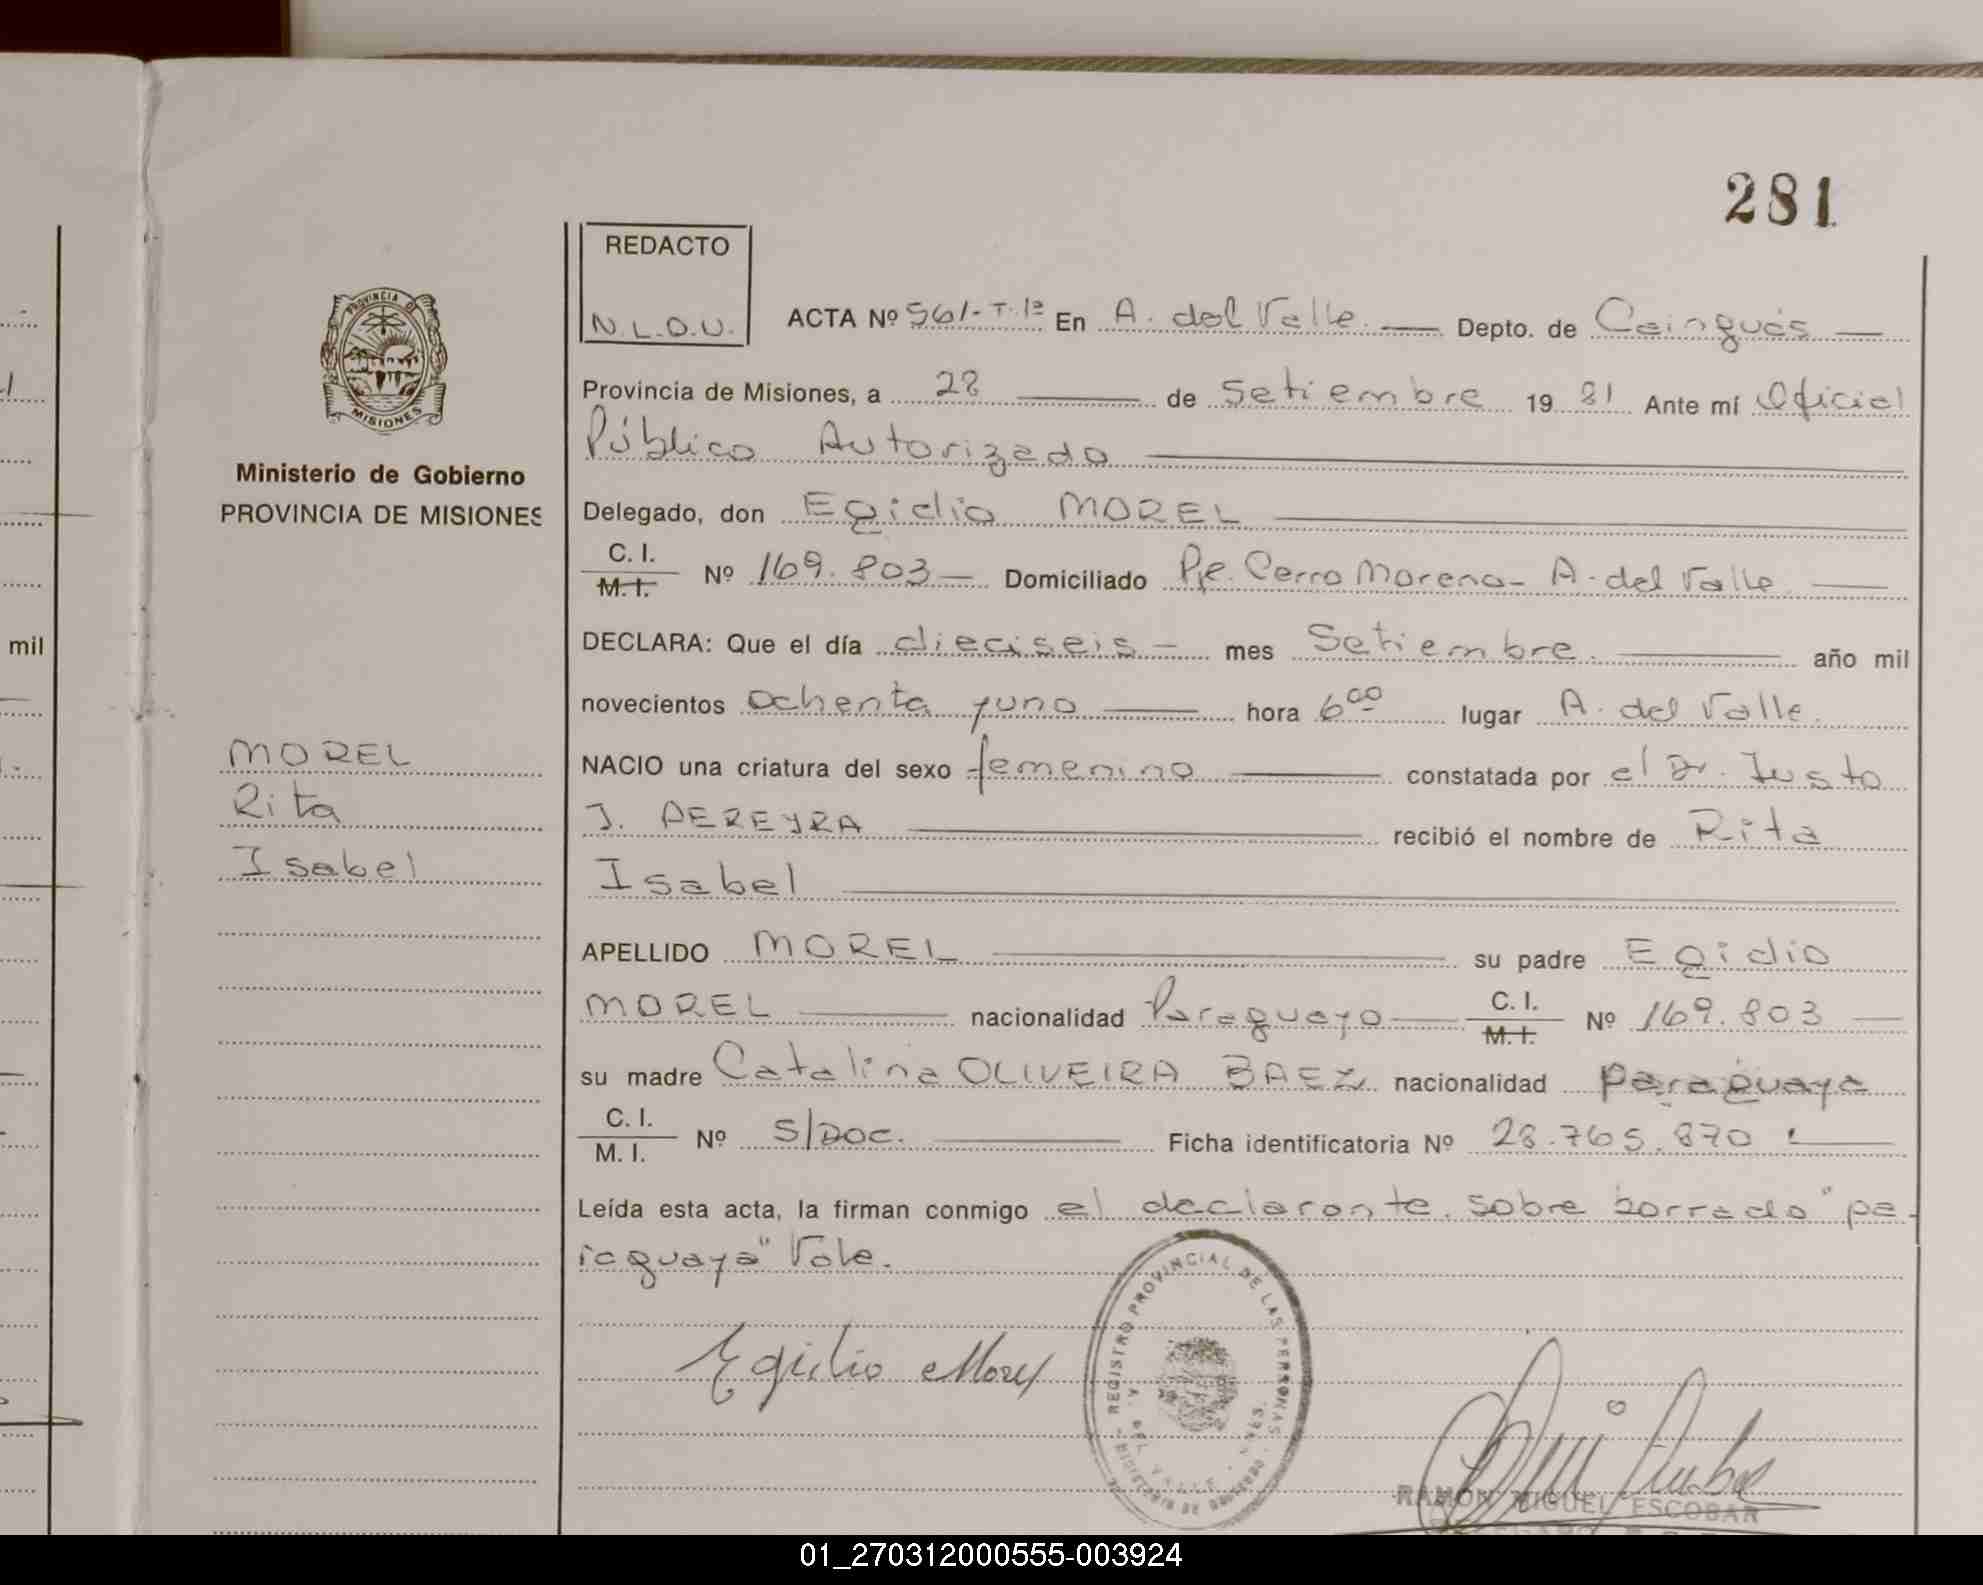 281
REDACTO
N.L.O.U.
PROVINCIA DE
MISIONES
Ministerio de Gobierno
PROVINCIA DE MISIONES
ACTA Nº 561-T.1º En A. del Valle. Depto. de Cainguás
Provincia de Misiones, a 28 de Setiembre 19 81 Ante mí Oficial
Público Autorizado
Delegado, don Egidio MOREL
C. I.
M. I. Nº 169.803 Domiciliado Pje. Cerro Moreno - A. del Valle
DECLARA: Que el día dieciseis mes Setiembre. año mil
novecientos ochenta yuno hora 6 00 lugar A. del Valle.
NACIO una criatura del sexo femenino constatada por el Dr. Justo
J. PEREYRA recibió el nombre de Rita
Isabel
APELLIDO MOREL su padre Egidio
MOREL nacionalidad Paraguayo C. I. M. I. Nº 169.803
su madre Catalina OLIVEIRA BAEZ nacionalidad paraguaya
C. I.
M. I. Nº S/DOC. Ficha identificatoria Nº 28.765.870
Leída esta acta, la firman conmigo el declarante. sobre borrado "pa-
raguaya" Vale.
MOREL
Rita
Isabel
mil
Egidio Morel
REGISTRO PROVINCIAL DE LAS PERSONAS
A. DEL VALLE
RAMON MIGUEL ESCOBAR
01_270312000555-003924